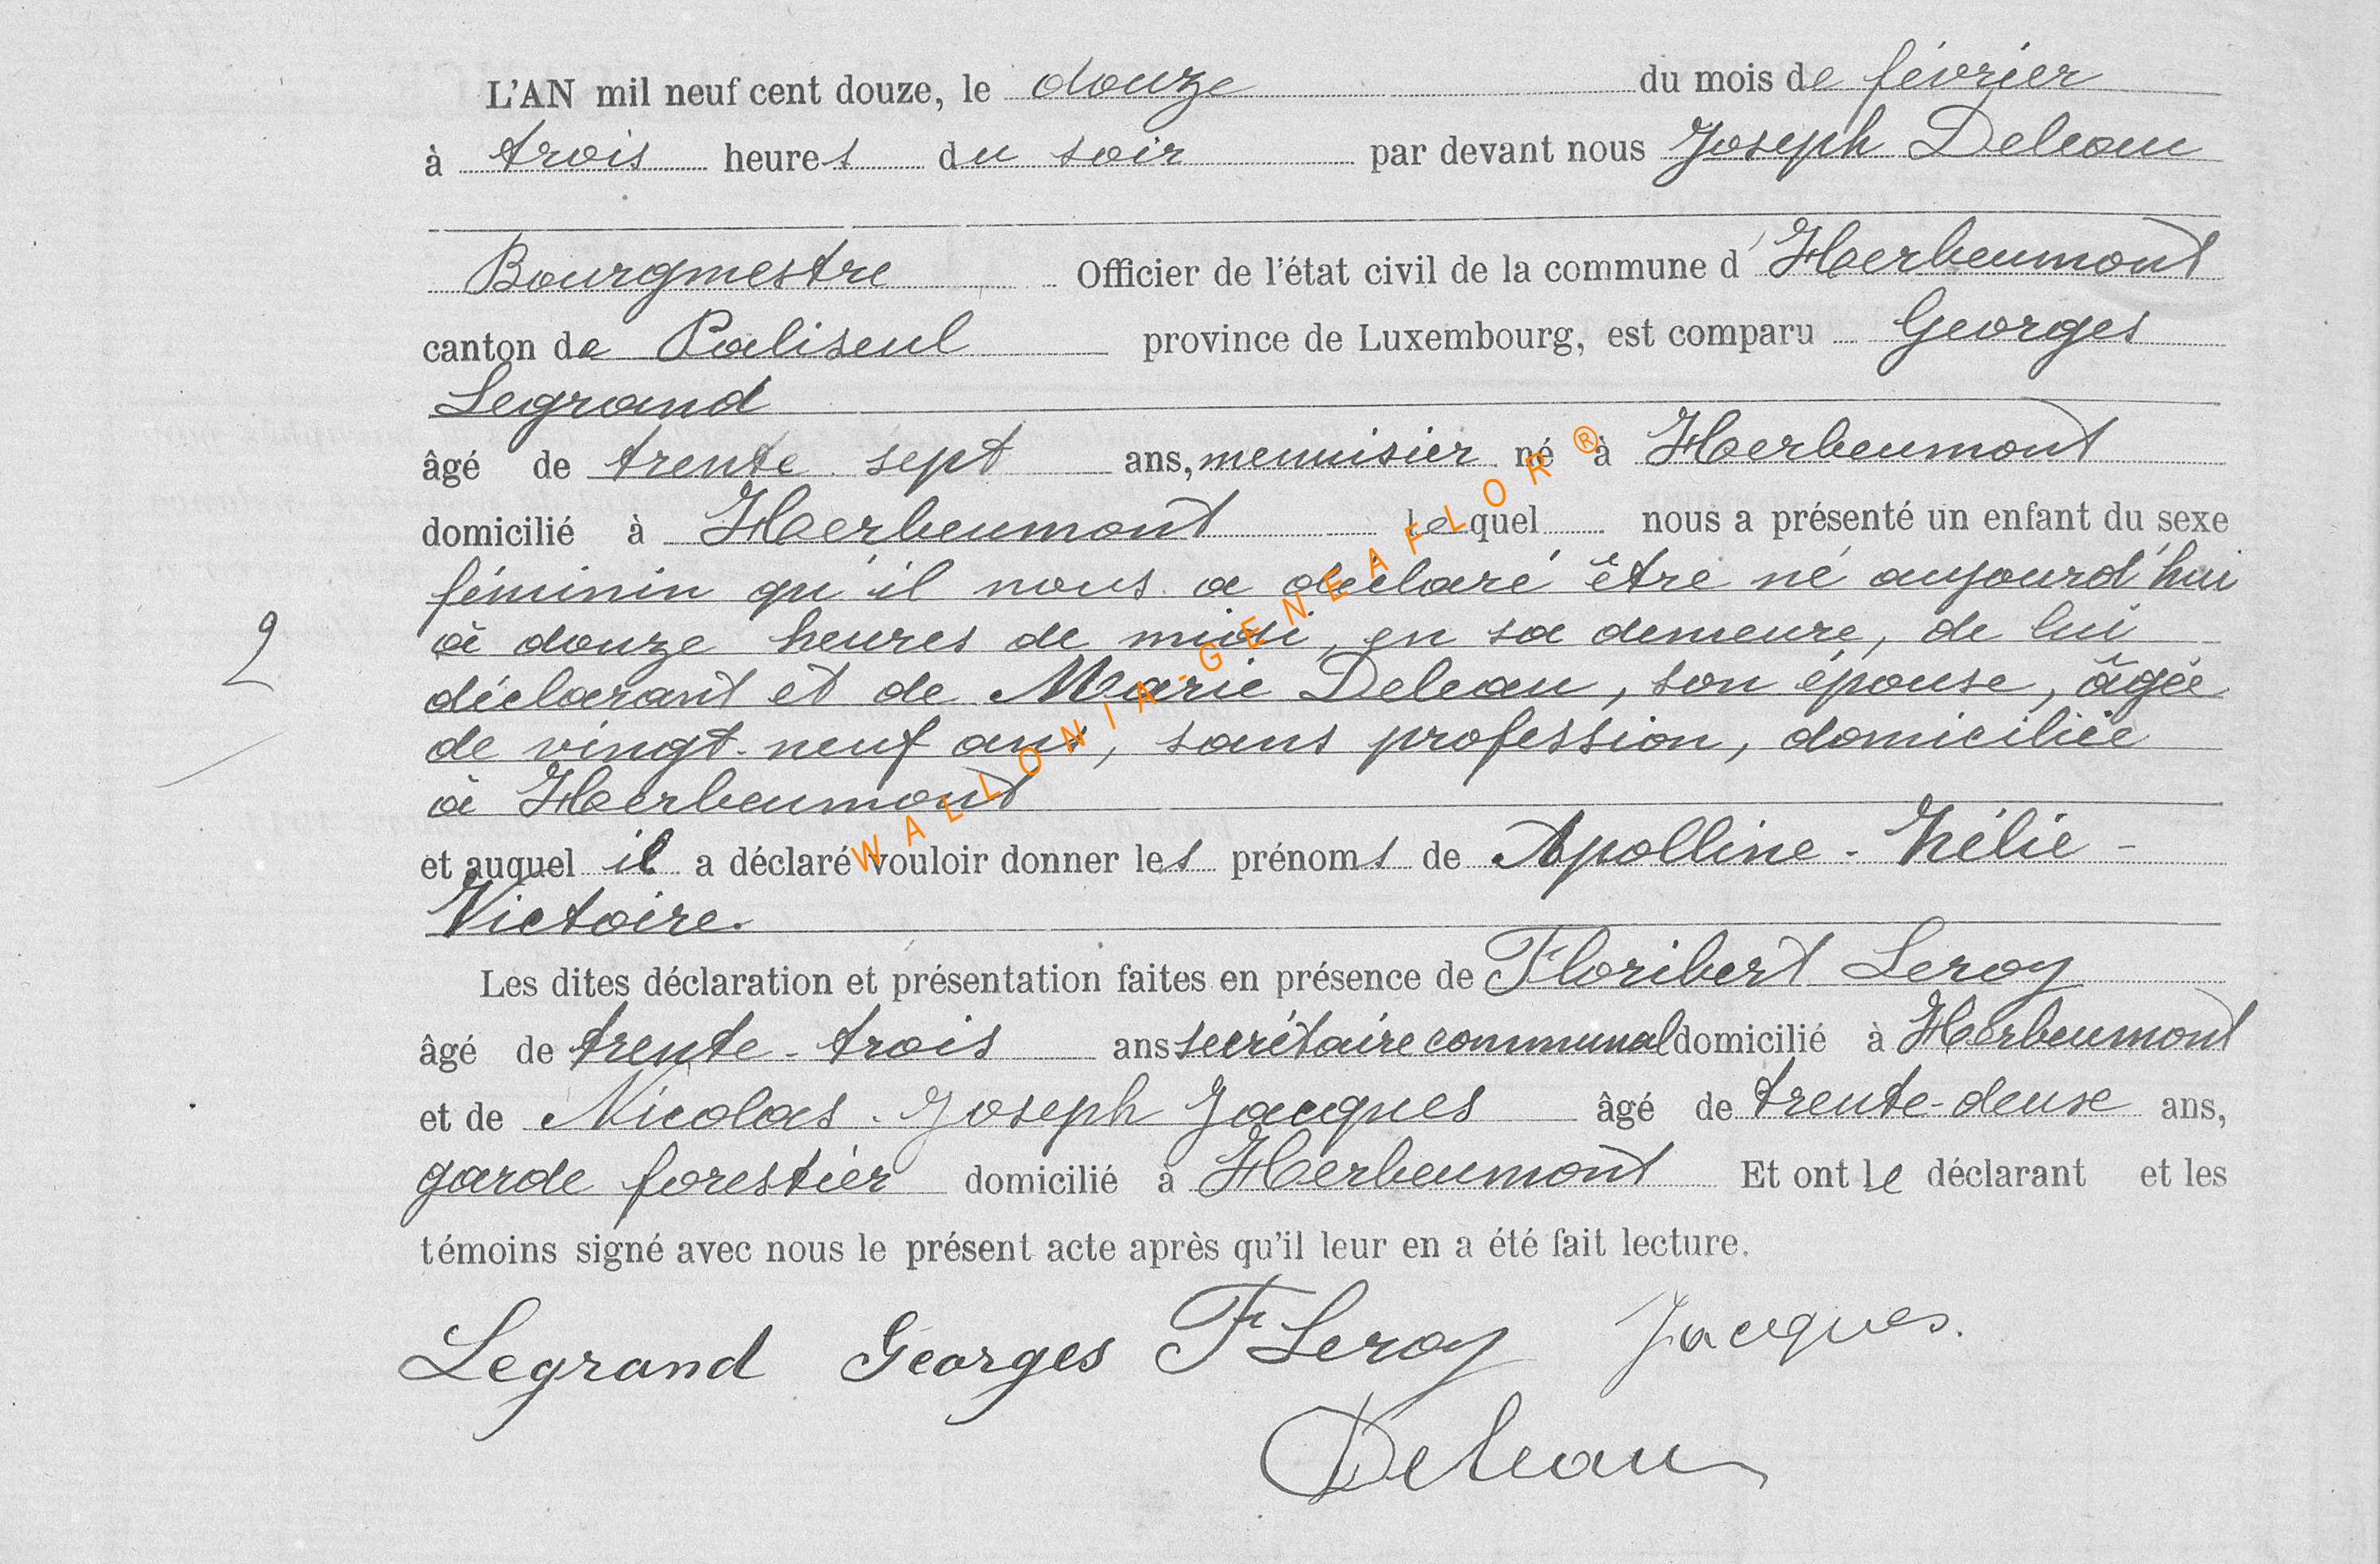 L'AN mil neuf cent douze, le douze du mois de février
à trois heures du soir par devant nous Joseph Deleau
Bourgmestre Officier de l'état civil de la commune d'Herbeumont
canton de Paliseul province de Luxembourg, est comparu Georges
Legrand
âgé de trente sept ans, menuisier né à Herbeumont
domicilié à Herbeumont lequel nous a présenté un enfant du sexe
féminin qu'il nous a déclaré être né aujourd'hui
à douze heures de midi, en sa demeure, de lui
2
déclarant et de Marie Deleau, son épouse, âgée
de vingt-neuf ans, sans profession, domiciliée
à Herbeumont
et auquel il a déclaré vouloir donner les prénoms de Apolline - Zélie -
Victoire.
Les dites déclaration et présentation faites en présence de Floribert Leroy
âgé de trente-trois ans secrétaire communal domicilié à Herbeumont
et de Nicolas-Joseph Jacques âgé de trente-deux ans,
garde forestier domicilié à Herbeumont Et ont le déclarant et les
témoins signé avec nous le présent acte après qu'il leur en a été fait lecture.
Legrand Georges F Leroy Jacques.
Deleau
WALLONIA-GENEAFLOR®